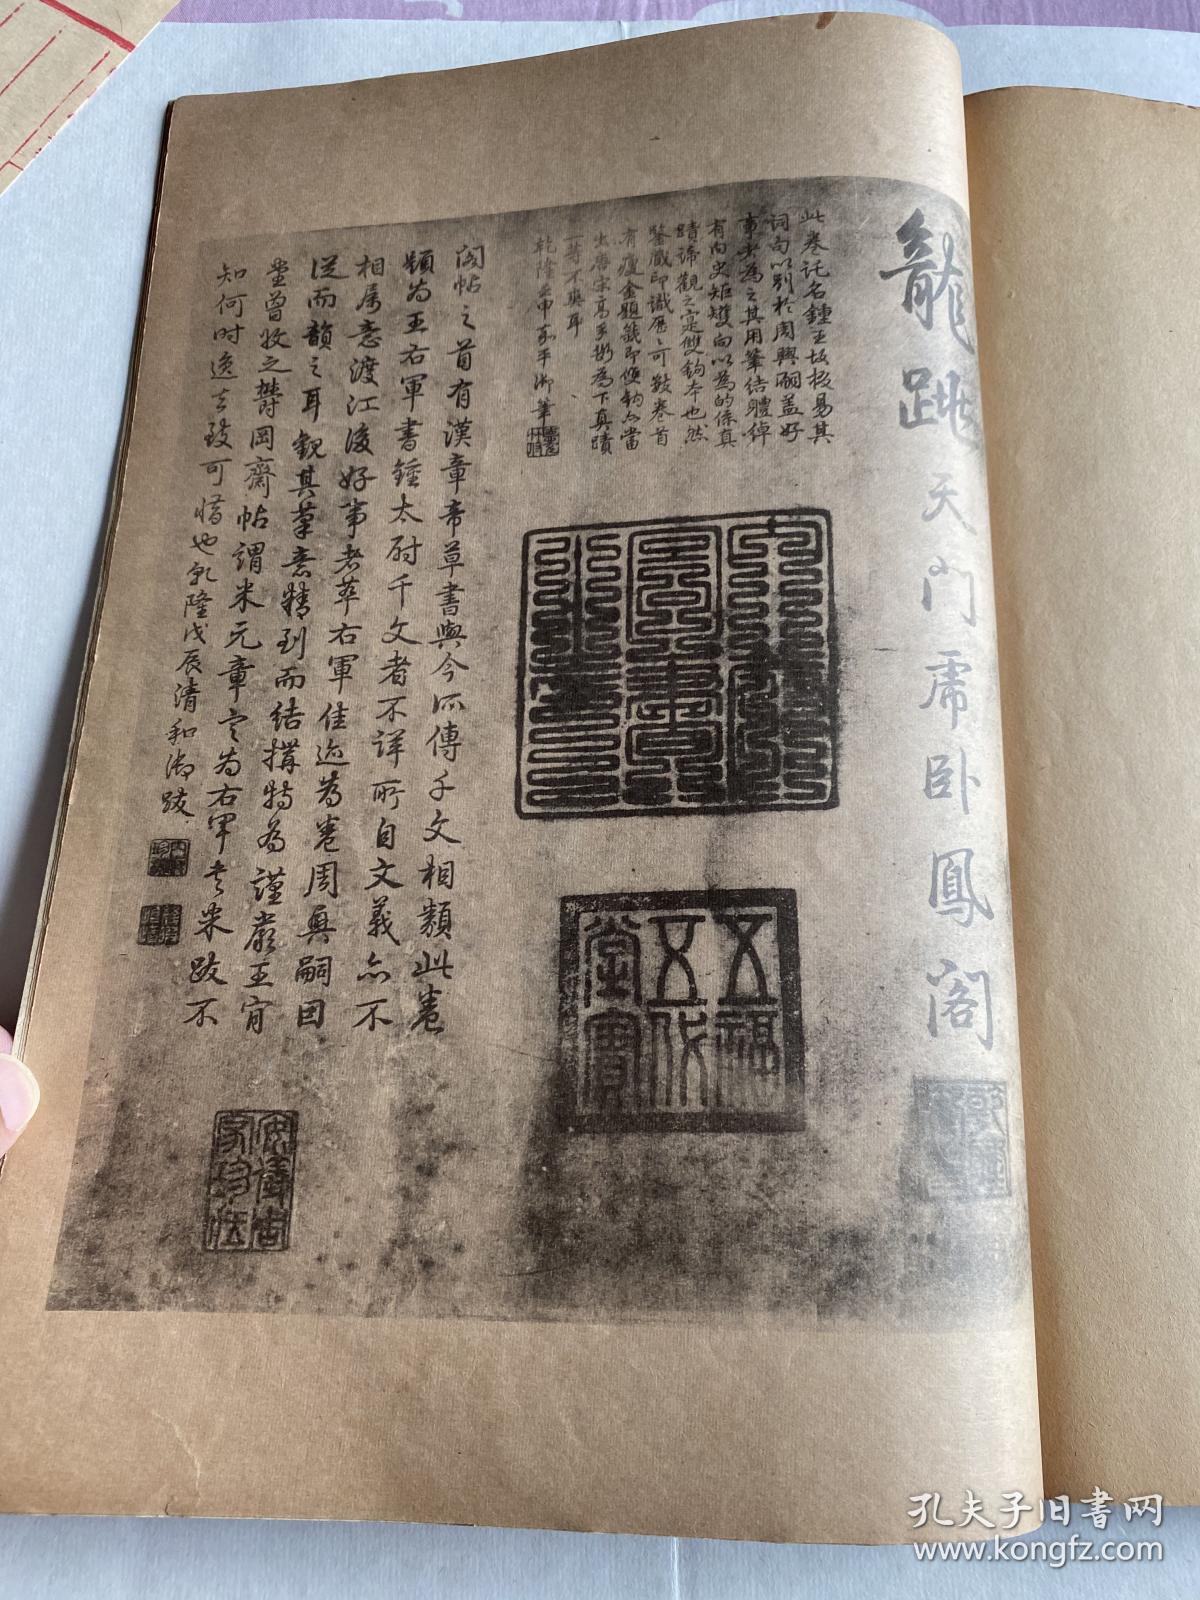 龍跳天門虎卧鳳閣
此卷託名鍾王故極易其
詞句以別於周興嗣蓋好
事者為之其用筆結體綽
有内史矩矱向以為的係真
蹟諦觀之寔雙鉤本也然
鑒藏印識歷歷可數卷首
有瘦金題籤即使鉤亦當
出唐宋高手擬為下真蹟
一等不與耳
乾隆壬申嘉平御筆
五福
五代
堂寶
閣帖之首有漢章帝草書與今所傳千文相類此卷
題為王右軍書鍾太尉千文者不詳所自文義亦不
相属意渡江後好事者萃右軍佳迹為卷周興嗣因
從而韻之耳觀其筆意精到而結搆特為謹嚴王肯
堂曾收之鬱岡齋帖謂米元章定為右軍書米跋不
知何時逸去致可惜也乾隆戊辰清和御跋
安儀周
家珍藏
孔夫子旧书网
www.kongfz.com